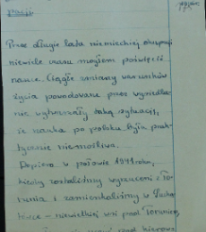 Przez długie lata niemieckiej okupacji
niewiele czasu mogłem poświęcić
nauce. Ciągłe zmiany warunków
życia powodowane przez wysiedle-
nie wytwarzały taką sytuację,
że nauka po polsku była prak-
tycznie niemożliwa.
Dopiero w połowie roku,
kiedy zostaliśmy wyrzuceni z To-
runia i zamieszkaliśmy w
- niewielkiej wsi pod Toruniem,